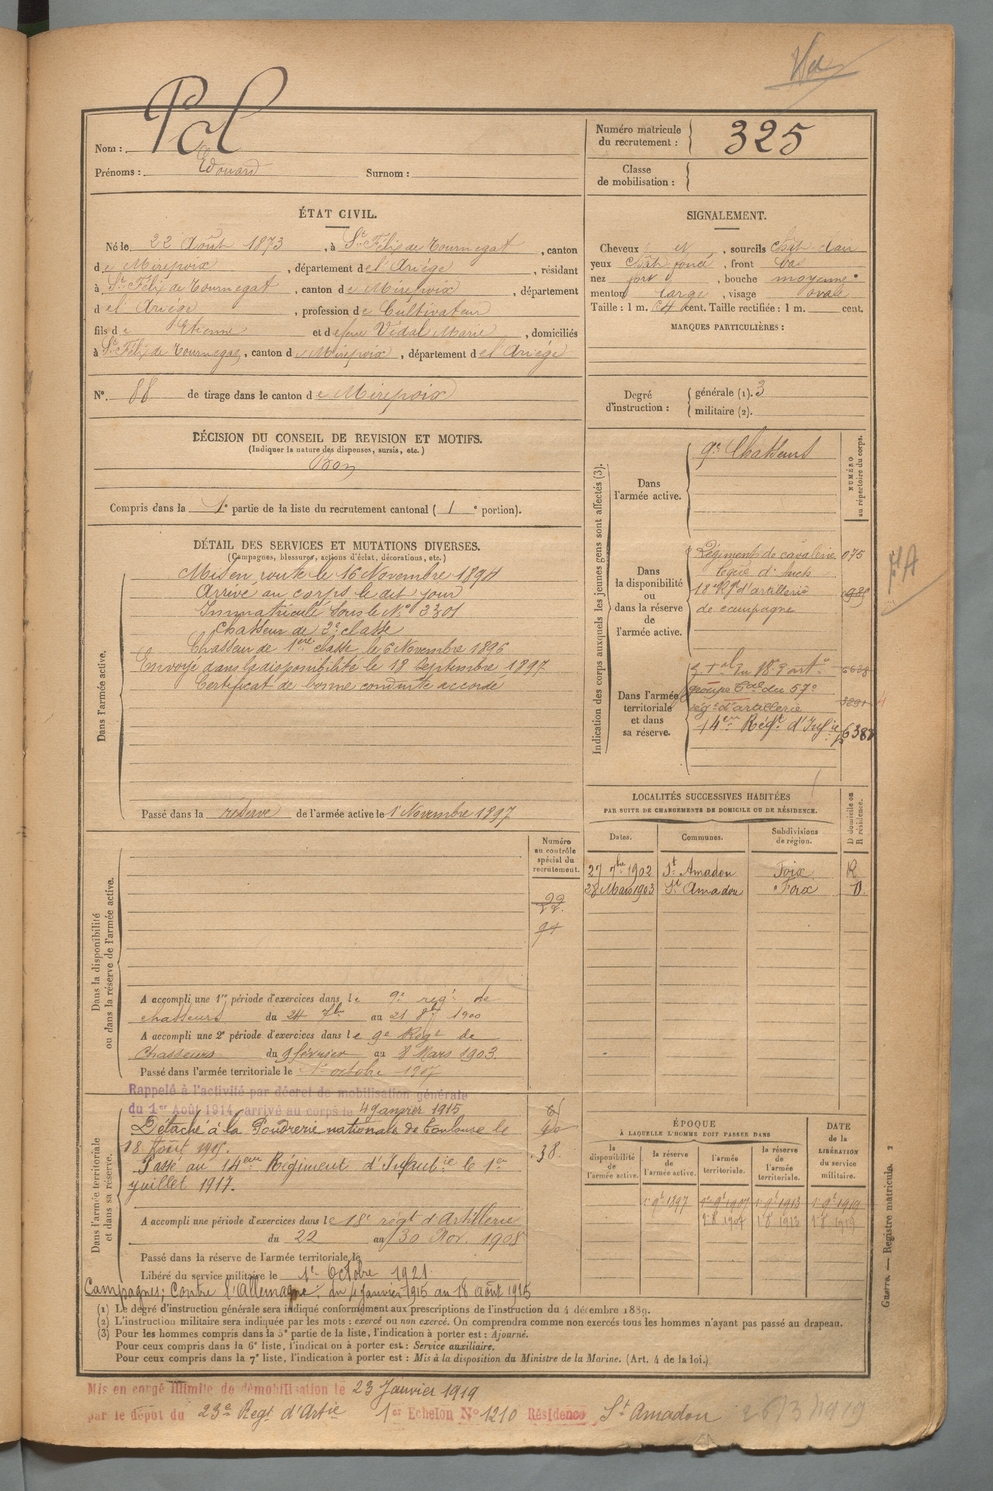 Pol
Nom :
Prénoms : Edouard Surnom :
Numéro matricule du recrutement : 325
Classe de mobilisation :
ÉTAT CIVIL.
Né le 22 Août 1873, à St Félix de Tournegat, canton
de Mirepoix, département de l'Ariège, résidant
à St Félix de Tournegat, canton de Mirepoix, département
de l'Ariège, profession de Cultivateur
fils de Etienne et de feue Vidal Marie, domiciliés
à St Félix de Tournegat, canton de Mirepoix, département de l'Ariège
N° 88 de tirage dans le canton de Mirepoix
SIGNALEMENT.
Cheveux et, sourcils chât. clair
yeux chât. foncé, front bas
nez fort, bouche moyenne
menton large, visage oval
Taille : 1 m. 64 cent. Taille rectifiée : 1 m. cent.
MARQUES PARTICULIÈRES :
Degré d'instruction : générale (1). 3
militaire (2).
DÉCISION DU CONSEIL DE REVISION ET MOTIFS.
(Indiquer la nature des dispenses, sursis, etc.)
Bon
Compris dans la 1e partie de la liste du recrutement cantonal (1e portion).
DÉTAIL DES SERVICES ET MUTATIONS DIVERSES.
(Campagnes, blessures, actions d'éclat, décorations, etc.)
Dans l'armée active.
Mis en route le 16 Novembre 1894
Arrivé au corps le dit jour
Immatriculé sous le N° 3301
Chasseur de 2e classe
Chasseur de 1ere classe le 6 Novembre 1896
Envoyé dans la disponibilité le 18 Septembre 1897
Certificat de bonne conduite accordé
Passé dans la réserve de l'armée active le 1 Novembre 1897
Indication des corps auxquels les jeunes gens sont affectés (3).
NUMÉRO au répertoire du corps.
Dans l'armée active.
9e Chasseurs
Dans la disponibilité ou dans la réserve de l'armée active.
Régiment de cavalerie 075
légère d'Auch
18e Rgt d'artillerie
de campagne
Dans l'armée territoriale et dans sa réserve.
groupe tal du 57e
régt d'artillerie
14em Régt d'Infie 6387
LOCALITÉS SUCCESSIVES HABITÉES
PAR SUITE DE CHANGEMENTS DE DOMICILE OU DE RÉSIDENCE.
Dates. Communes. Subdivisions de région. D domicile ou R résidence.
27 7bre 1902 St Amadou Foix R
28 Mars 1903 St Amadou Foix D.
Numéro au contrôle spécial du recrutement.
Dans la disponibilité ou dans la réserve de l'armée active.
A accompli une 1re période d'exercices dans le 9e régt de
chasseurs du 24 7b au 21 8b 1900
A accompli une 2e période d'exercices dans le 9e Régt de
Chasseurs du 9 février au 8 Mars 1903.
Passé dans l'armée territoriale le 1er octobre 1907
Rappelé à l'activité par décret de mobilisation générale
du 1er Août 1914, arrivé au corps le 4 Janvier 1915
Dans l'armée territoriale et dans sa réserve.
Détaché à la Poudrerie nationale de Toulouse le
18 Août 1915.
Passé au 14em Régiment d'Infanterie le 1er
juillet 1917.
38.
A accompli une période d'exercices dans le 18e régt d'Artillerie
du 22 au 30 Nov. 1908
Passé dans la réserve de l'armée territoriale le
Libéré du service militaire le 1er Octobre 1921
Campagnes; Contre l'Allemagne: du 4 Janvier 1915 au 18 août 1915
ÉPOQUE
À LAQUELLE L'HOMME DOIT PASSER DANS
la disponibilité de l'armée active. la réserve de l'armée active. l'armée territoriale. la réserve de l'armée territoriale.
DATE de la LIBÉRATION du service militaire.
1 9e 1897 1e 9e 1907 1 9e 1913 1 9e 1919
Guerre. — Registre matricule. 2
(1) Le degré d'instruction générale sera indiqué conformément aux prescriptions de l'instruction du 4 décembre 1889.
(2) L'instruction militaire sera indiquée par les mots : exercé ou non exercé. On comprendra comme non exercés tous les hommes n'ayant pas passé au drapeau.
(3) Pour les hommes compris dans la 5e partie de la liste, l'indication à porter est : Ajourné.
Pour ceux compris dans la 6e liste, l'indication à porter est : Service auxiliaire.
Pour ceux compris dans la 7e liste, l'indication à porter est : Mis à la disposition du Ministre de la Marine. (Art. 4 de la loi.)
Mis en congé illimité de démobilisation le 23 Janvier 1919
par le dépôt du 23e Regt d'Artie 1er Echelon N° 1210 Résidence St Amadou 26/3/1919